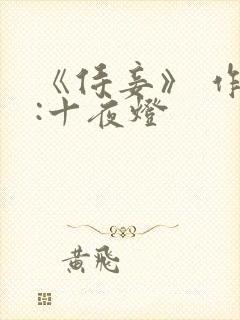 《侍妾》 作
:十夜燈
黄飛